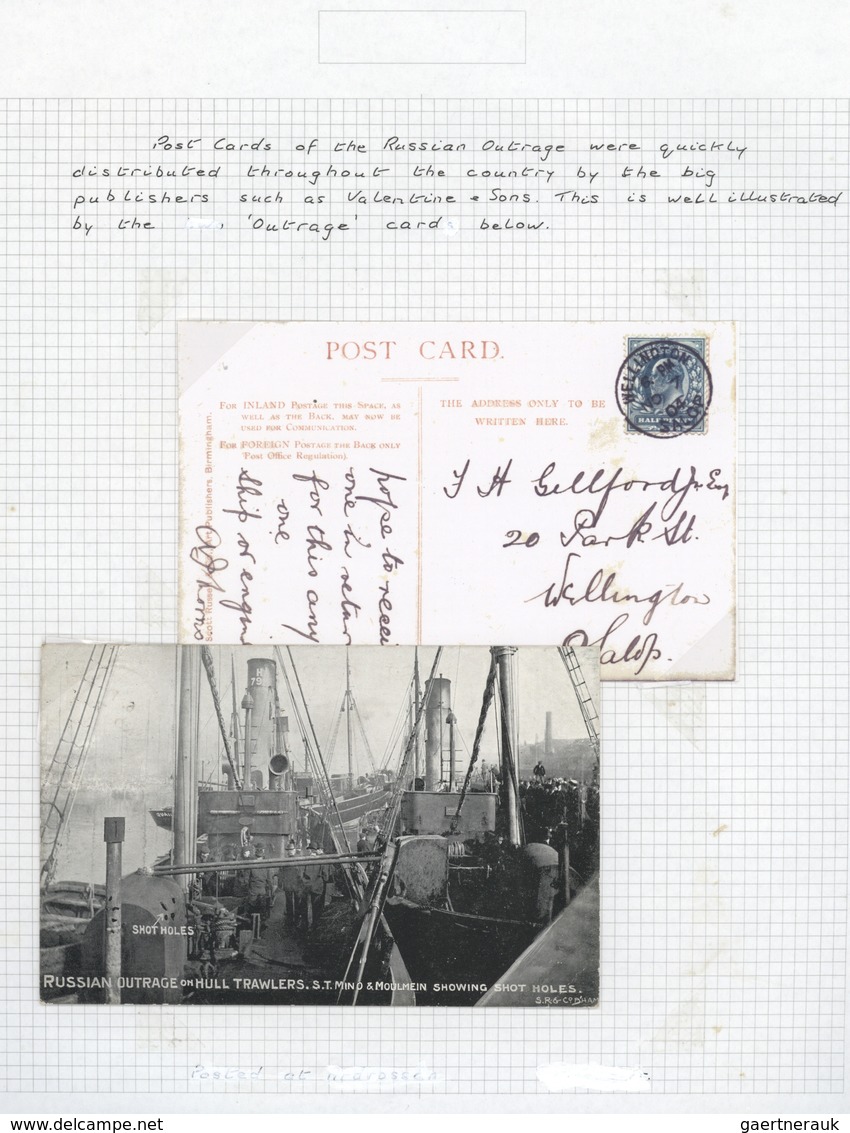 Post Cards of the Russian Outrage were quickly
distributed throughout the country by the big
publishers such as Valentine & Sons. This is well illustrated
by the 'Outrage' card below.
POST CARD.
FOR INLAND POSTAGE THIS SPACE, AS
WELL AS THE BACK, MAY NOW BE
USED FOR COMMUNICATION.
FOR FOREIGN POSTAGE THE BACK ONLY
Post Office Regulation).
THE ADDRESS ONLY TO BE
WRITTEN HERE.
WELLINGTON
SALOP
HALFPENNY
Publishers, Birmingham.
Scott Russell
hope to recei
one in retur
for this any
one
ship or engin
20 Park St.
Wellington
Salop.
H
79
SHOT HOLES
RUSSIAN OUTRAGE ON HULL TRAWLERS. S.T. MINO & MOULMEIN SHOWING SHOT HOLES.
S.R.& Co B'HAM
Posted at
delcampe.net
gaertnerauk